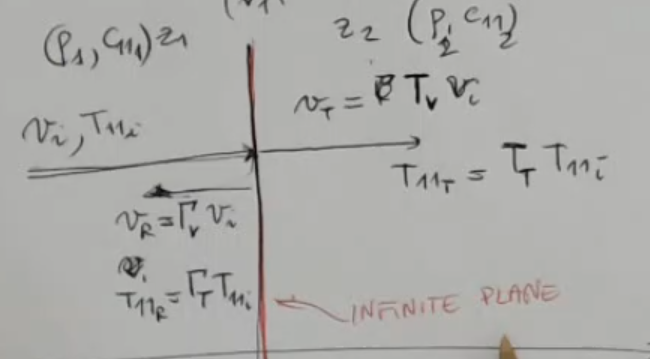 (ρ₁, C₁₁₁) z₁
z₂ (ρ₂, C₁₁₂)
v_T = T_v v_i
v_i, T₁₁ᵢ
T₁₁_T = T_T T₁₁ᵢ
v_R = Γ_v v_i
T₁₁_R = Γ_T T₁₁ᵢ
INFINITE PLANE